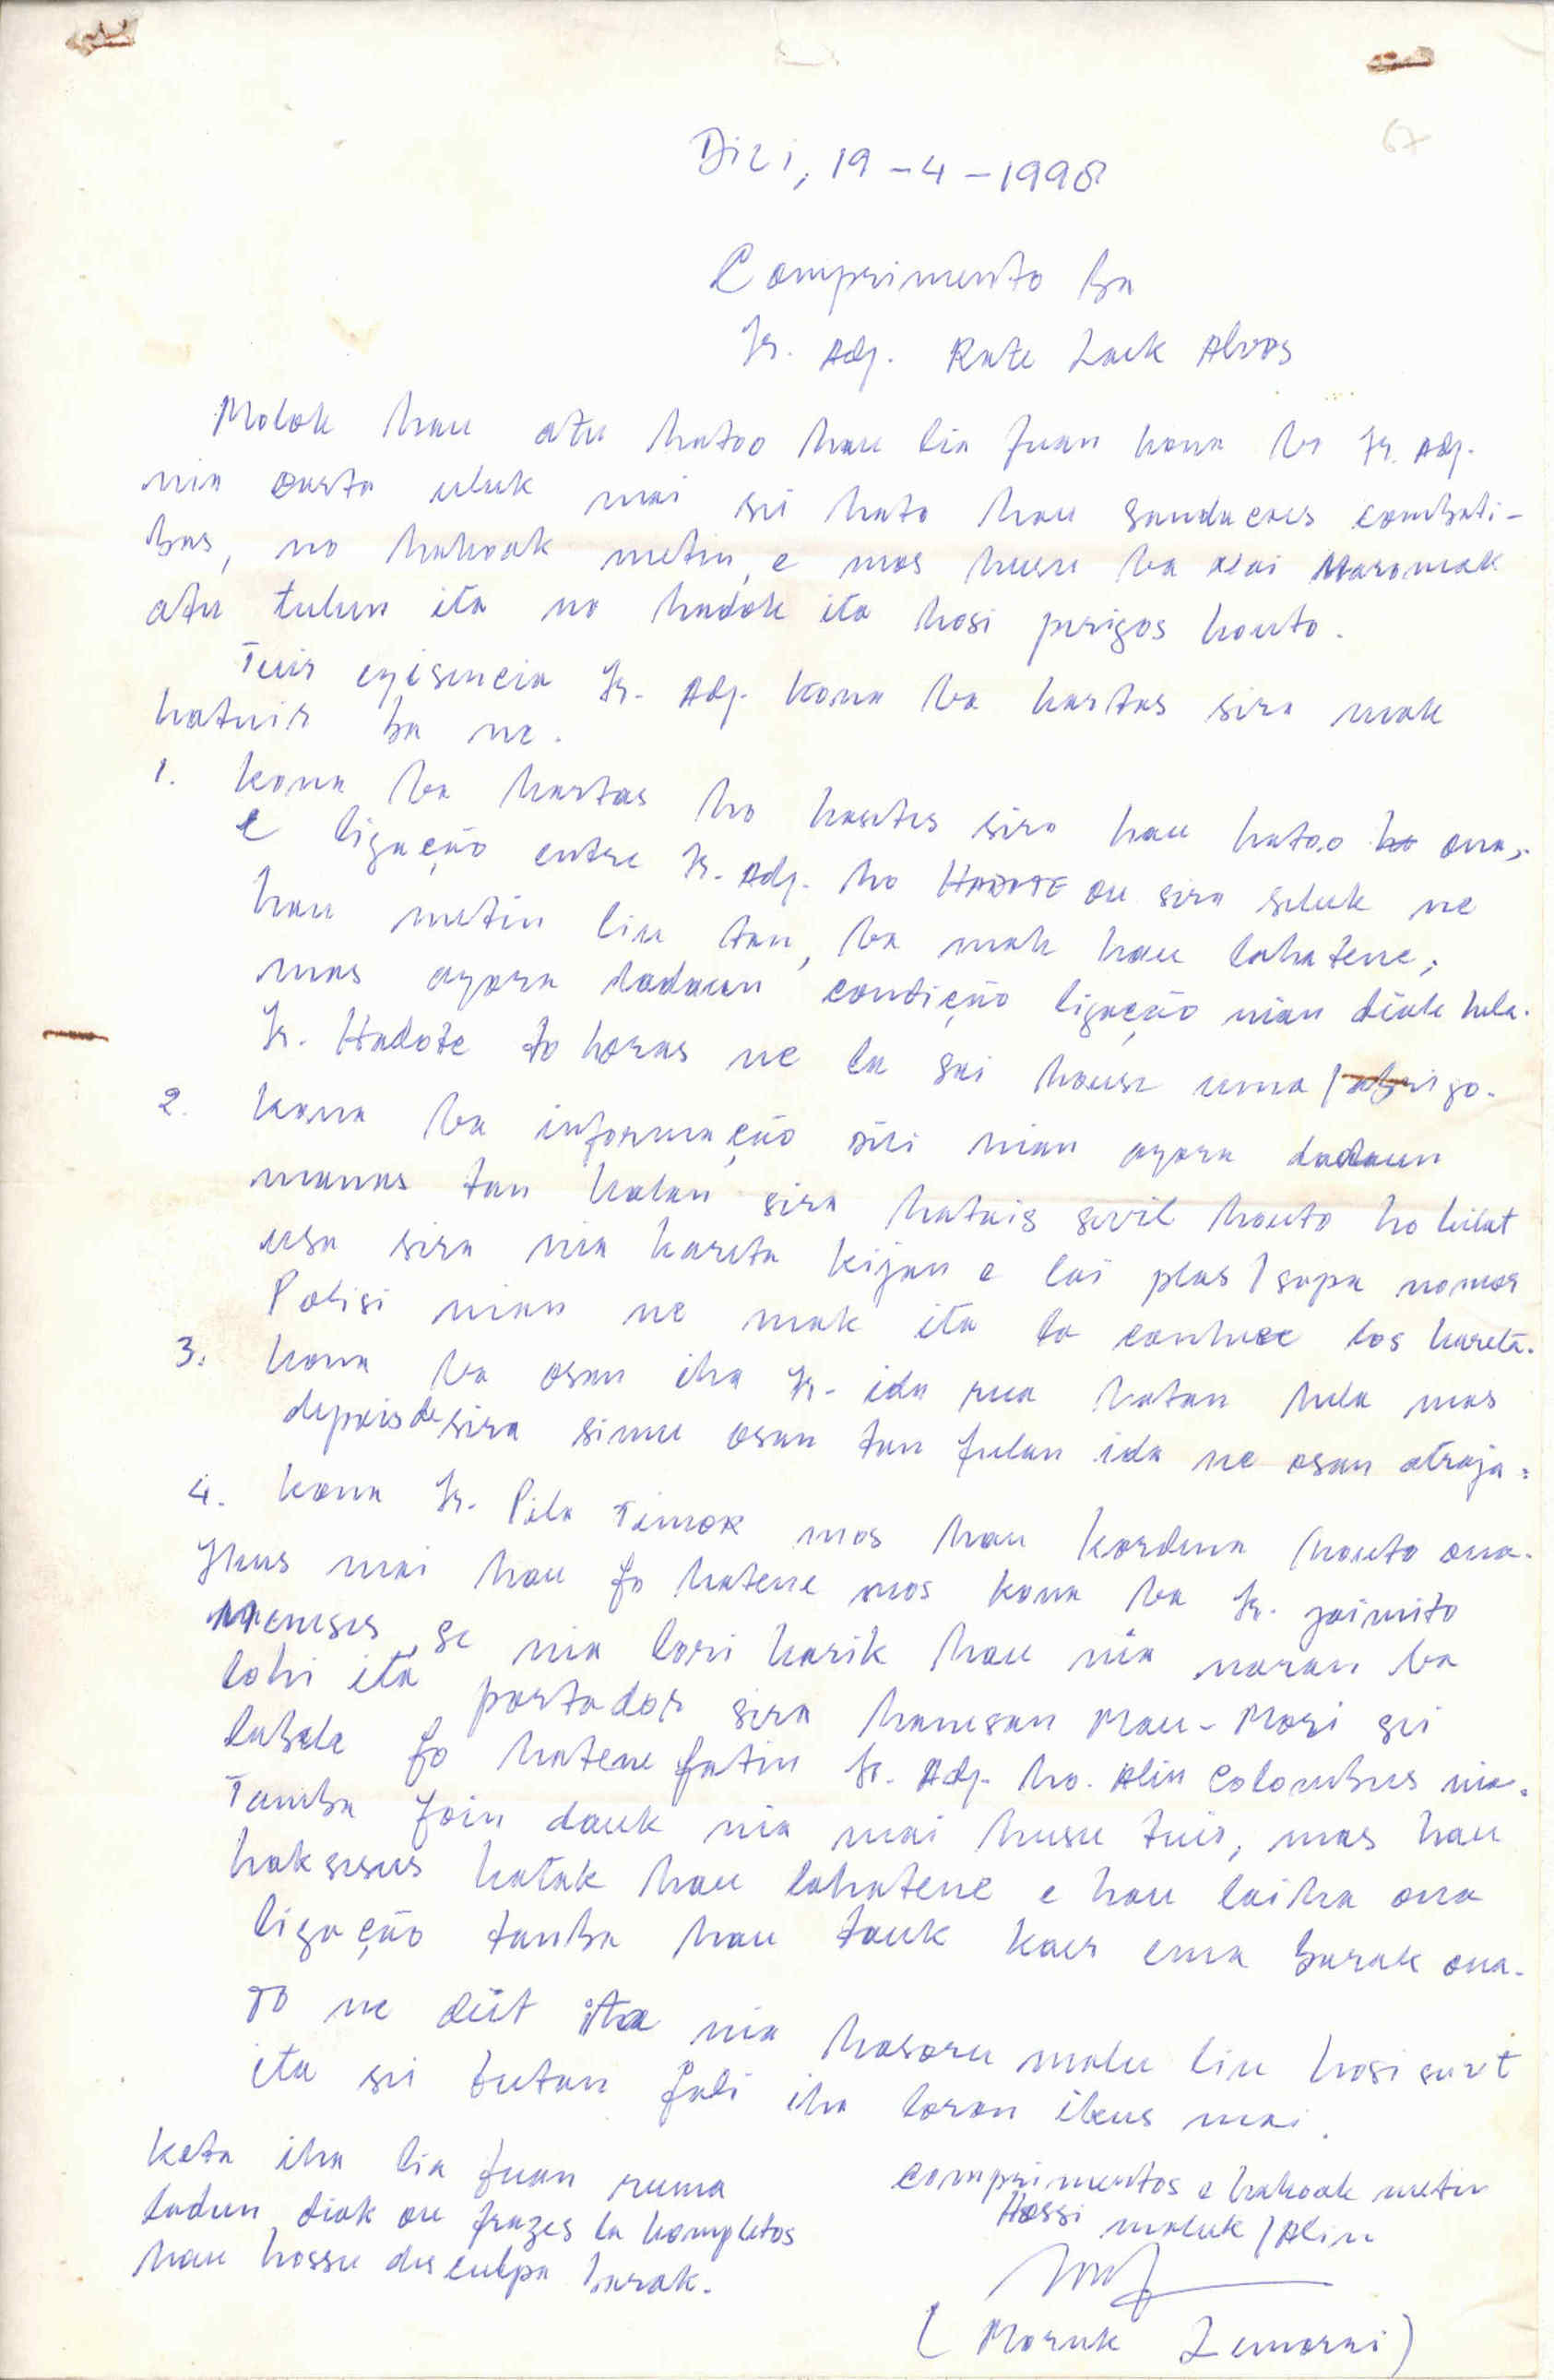 67
Dili, 19-4-1998
Comprimento ba
Ir. Adj. Rate Laek Alvos
Molok hau atu hatoo hau lia fuan kona ba Ir. Adj.
nia carta uluk mai sei hato hau saudacoes combati-
bas, no hakoak metin, e mos husu ba Nai Maromak
atu tulun ita no hadok ita hosi perigos houto.
Tuir exisencia Ir. Adj. kona ba kartas sira mak
hatuir ba ne.
1. Kona ba kartas ho kasetes sira hau hatoo ona,
e ligação entre Ir. Adj. ho HADOTE ou sira seluk ne
hau metin liu tan, ba mak hau lahatene;
mas agora dadaun condição ligação nian diak hela.
Ir. Hadote to horas ne la sai house uma / abrigo.
2. Kona ba informação Dili nian agora dadaun
manas tan kalan sira hatais sevil houto ho kilat
usa sira nia kareta kijan e lai plas / sapa nomor
Polisi nian ne mak ita la conhece los kareta.
3. kona ba osan iha Ir. ida rua hatan hela mas
depois de sira simu osan tan fulan ida ne osan atraja.
4. Kona Ir. Pila Timor mos hau kordena houto ona.
Ikus mai hau fo hatene mos kona ba Ir. Jaimito
Meneses, se nia lori karik hau nia naran ba
lohi ita portador sira hanesan Mau-Mori sei
labele fo hatene fatin Ir. Adj. ho Alin Colombus nia.
Tamba foin dauk nia mai husu tuir, mas hau
hakseses katak hau lahatene e hau laiha ona
ligação tanba hau tauk kaer ema barak ona.
To ne deit ita nia hasoru malu liu hosi surt
ita sei hetan fali iha loron ikus mai.
Keta iha lia fuan ruma
ladun diak ou frazes la kompletos
hau hossu desculpa barak.
Comprimentos e hakoak metin
Hossi maluk / Alin
(Moruk Lemorai)